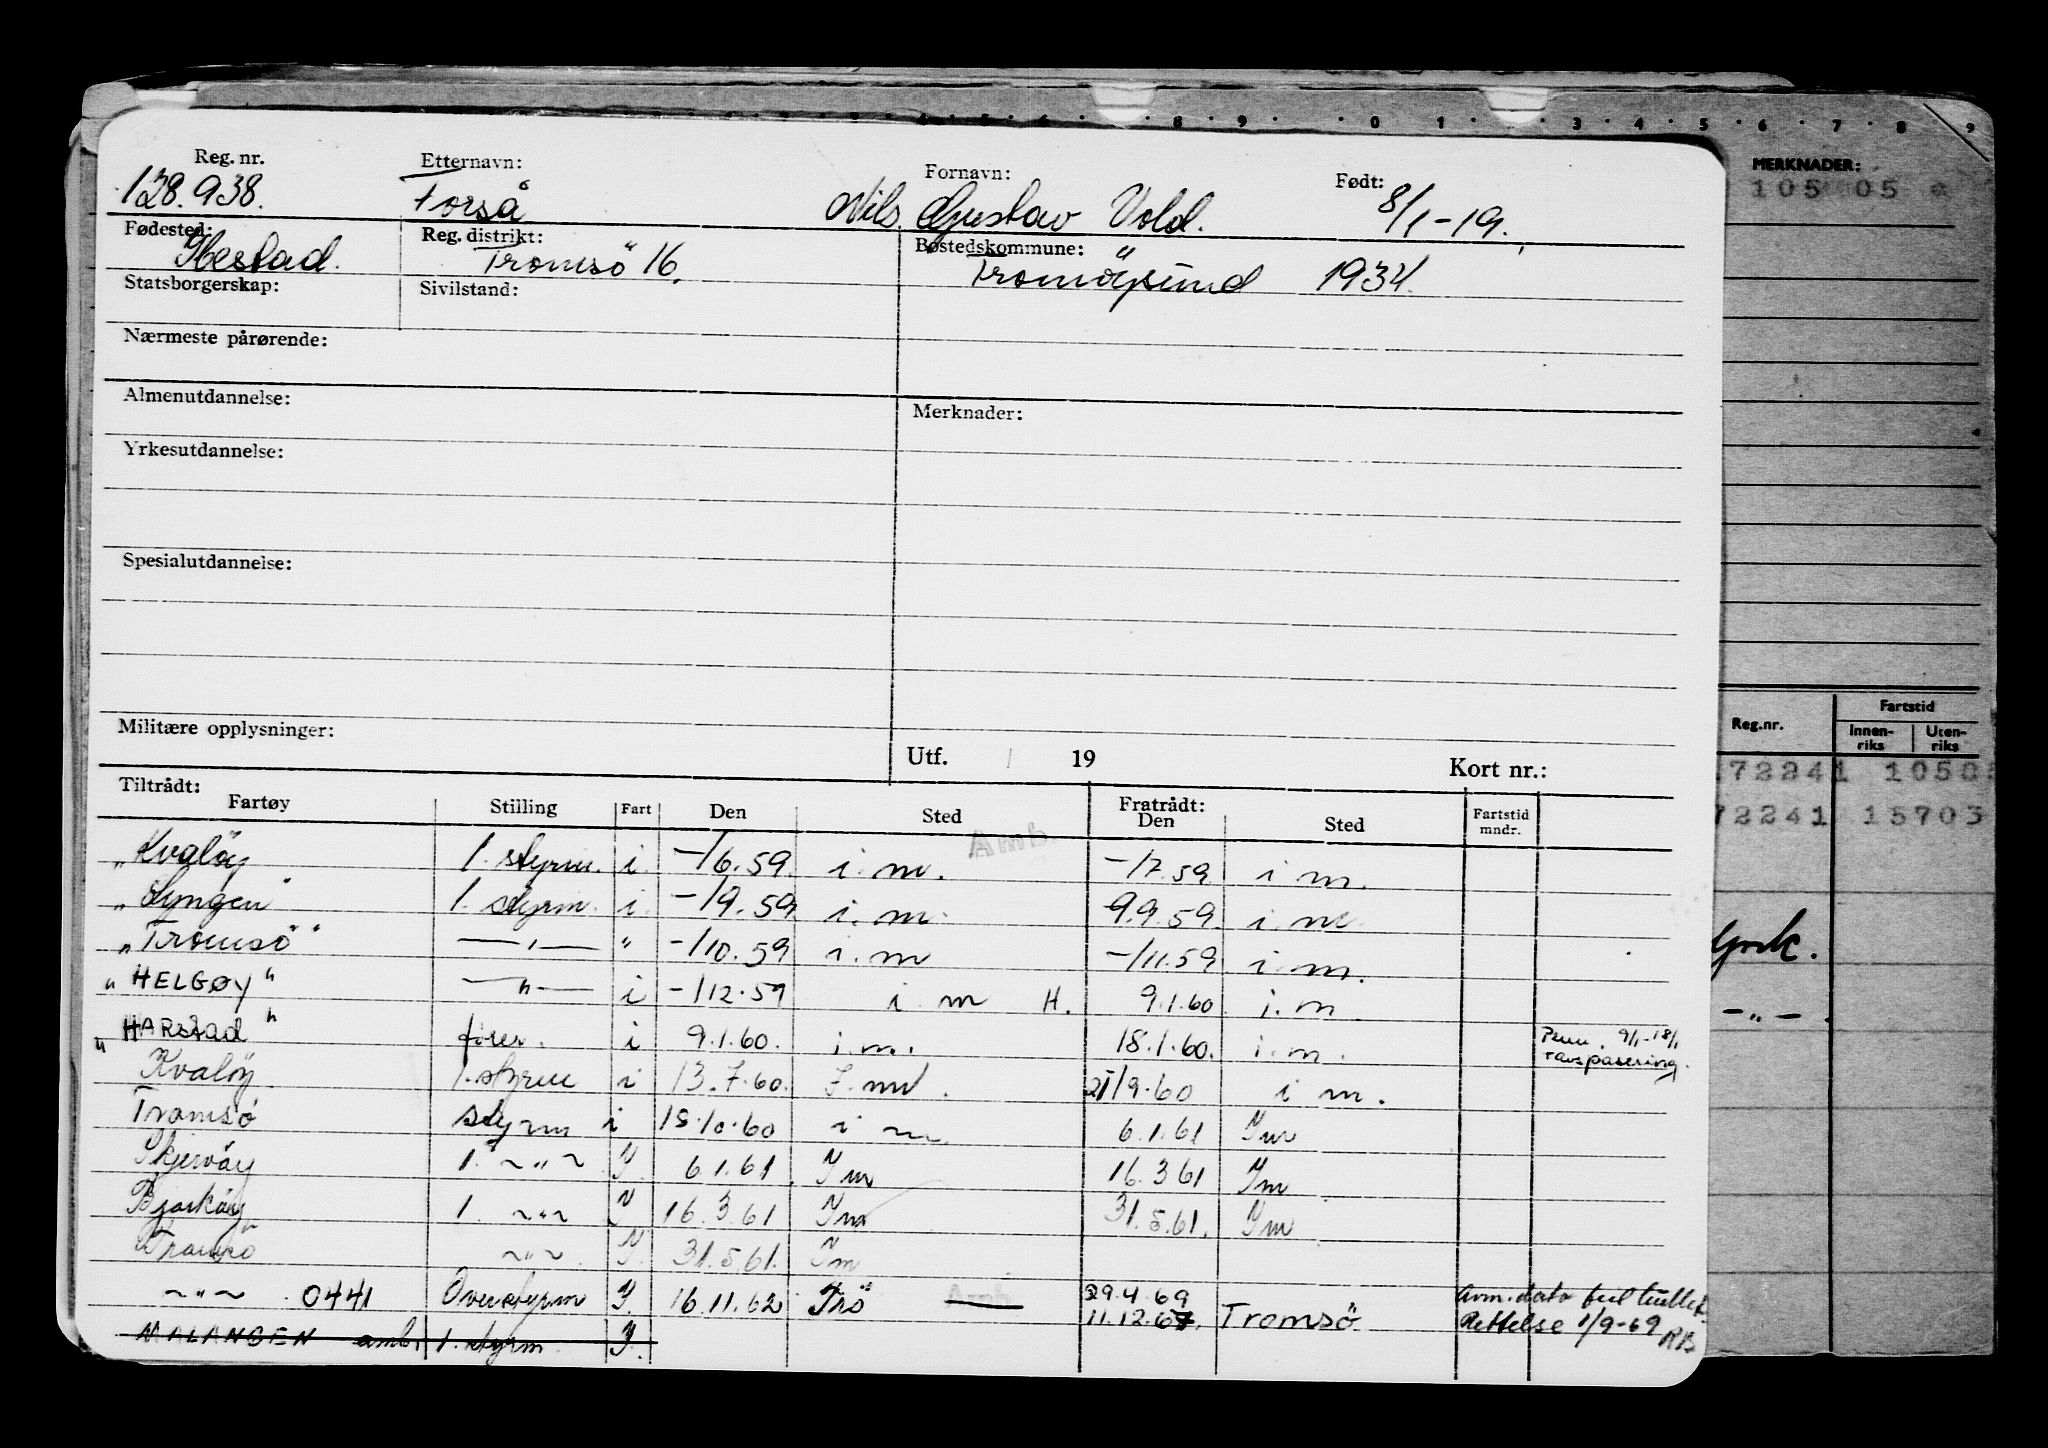 4 5 6 8 9 0 1 3 4 5 6 7 8 9
MERKNADER:
105 05 *
Reg. nr. Etternavn: Fornavn: Født:
128.938. Forså Nils Gustav Vold. 8/1-19.
Fødested: Reg. distrikt: Bostedskommune:
Ibestad. Tromsö 16. Tromöysund 1934.
Statsborgerskap: Sivilstand:
Nærmeste pårørende:
Almenutdannelse: Merknader:
Yrkesutdannelse:
Spesialutdannelse:
Militære opplysninger:
Utf. / 19 Kort nr.:
Tiltrådt: Fratrådt:
Fartøy Stilling Fart Den Sted Den Sted Fartstid mndr.
Amb.
"Kvaløy 1. styrm. i. -/6.59. i. m. -/7.59 i m.
"Lyngen" 1. styrm. i. -/9.59 i. m. 9.9.59. i. m.
"Tromsö" —"— " -/10.59 i. m -/11.59 i. m.
"HELGØY" —"— i -/12.59 i m H. 9.1.60 i. m
"HARstad" fører. i 9.1.60. i.m. 18.1.60. i. m. 9/1-18/1
Kvaløy 1. styrm i 13.7.60. I. m 21/9.60 i m.
Tromsö styrm i 15.10.60 i m 6.1.61 Im
Skjervöy 1. ~"~ I. 6.1.61. Im 16.3 61 Im
Bjarköy 1. ~"~ I 16.3.61 Im 31.5.61. Im
Tromsö ~"~ I. 31.5.61. Im
~"~ 0441 Overstyrm I. 16.11.62 Trö Amb 29.4.69
11.12.67. Tromsö Avm. dato
Rettelse 1/9-69 RB
MALANGEN amb. 1. styrm. I.
Reg.nr. Fartstid
Innen-riks Uten-riks
72241 1050
72241 15703
—"—